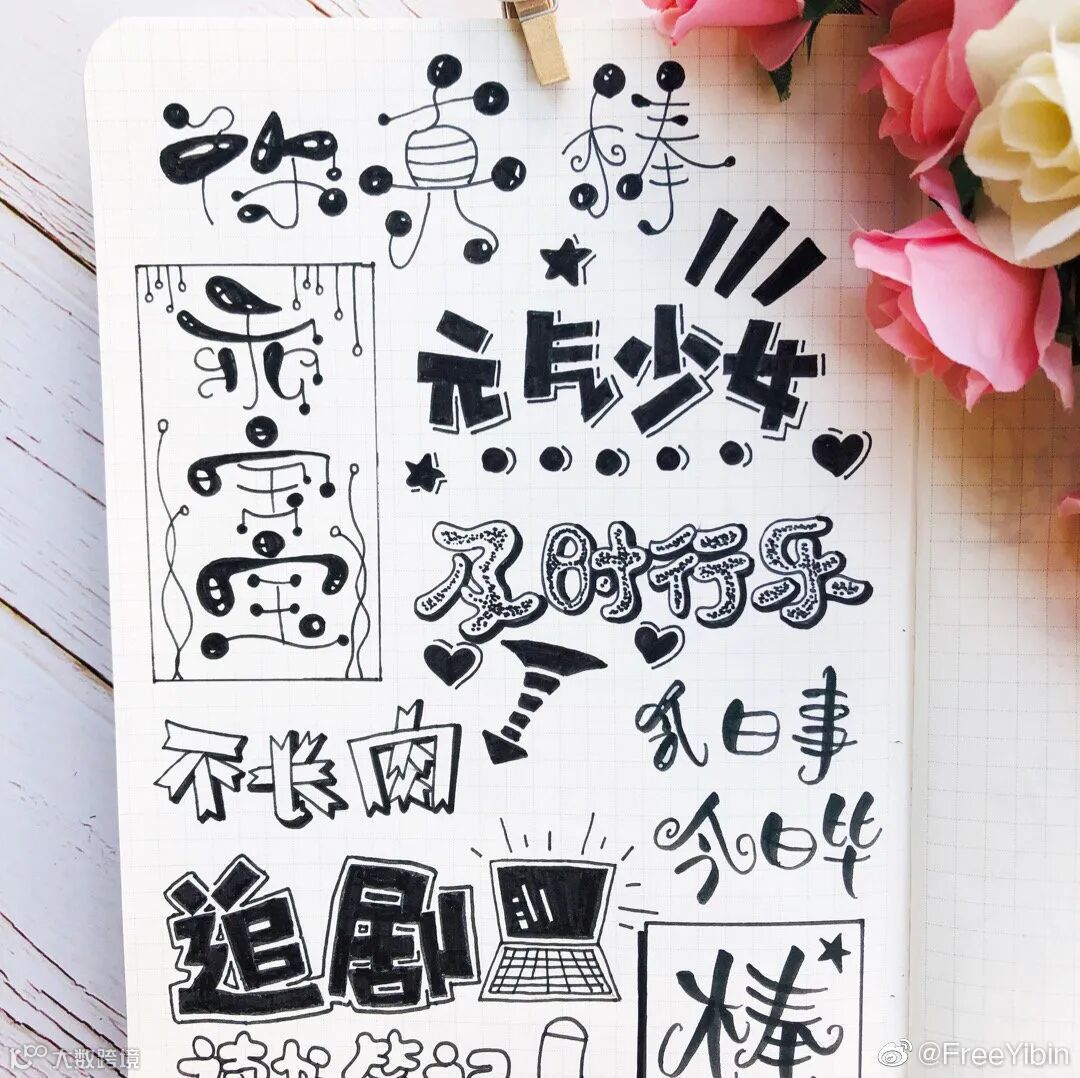 你真棒
乖宝宝
元气少女
及时行乐
不长肉
今日事
今日毕
追剧
棒
大数跨境
@FreeYibin